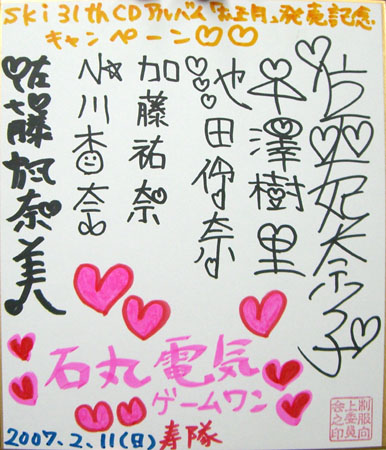 Ski 31th CDアルバム「お正月」発売記念
キャンペーン♡♡
妃奈子
澤樹里
池田 奈
加藤祐奈
小川杏奈
佐藤 奈美
石丸電気
ゲームワン
制服向
上委員
会之印
2007.2.11(日) 寿隊